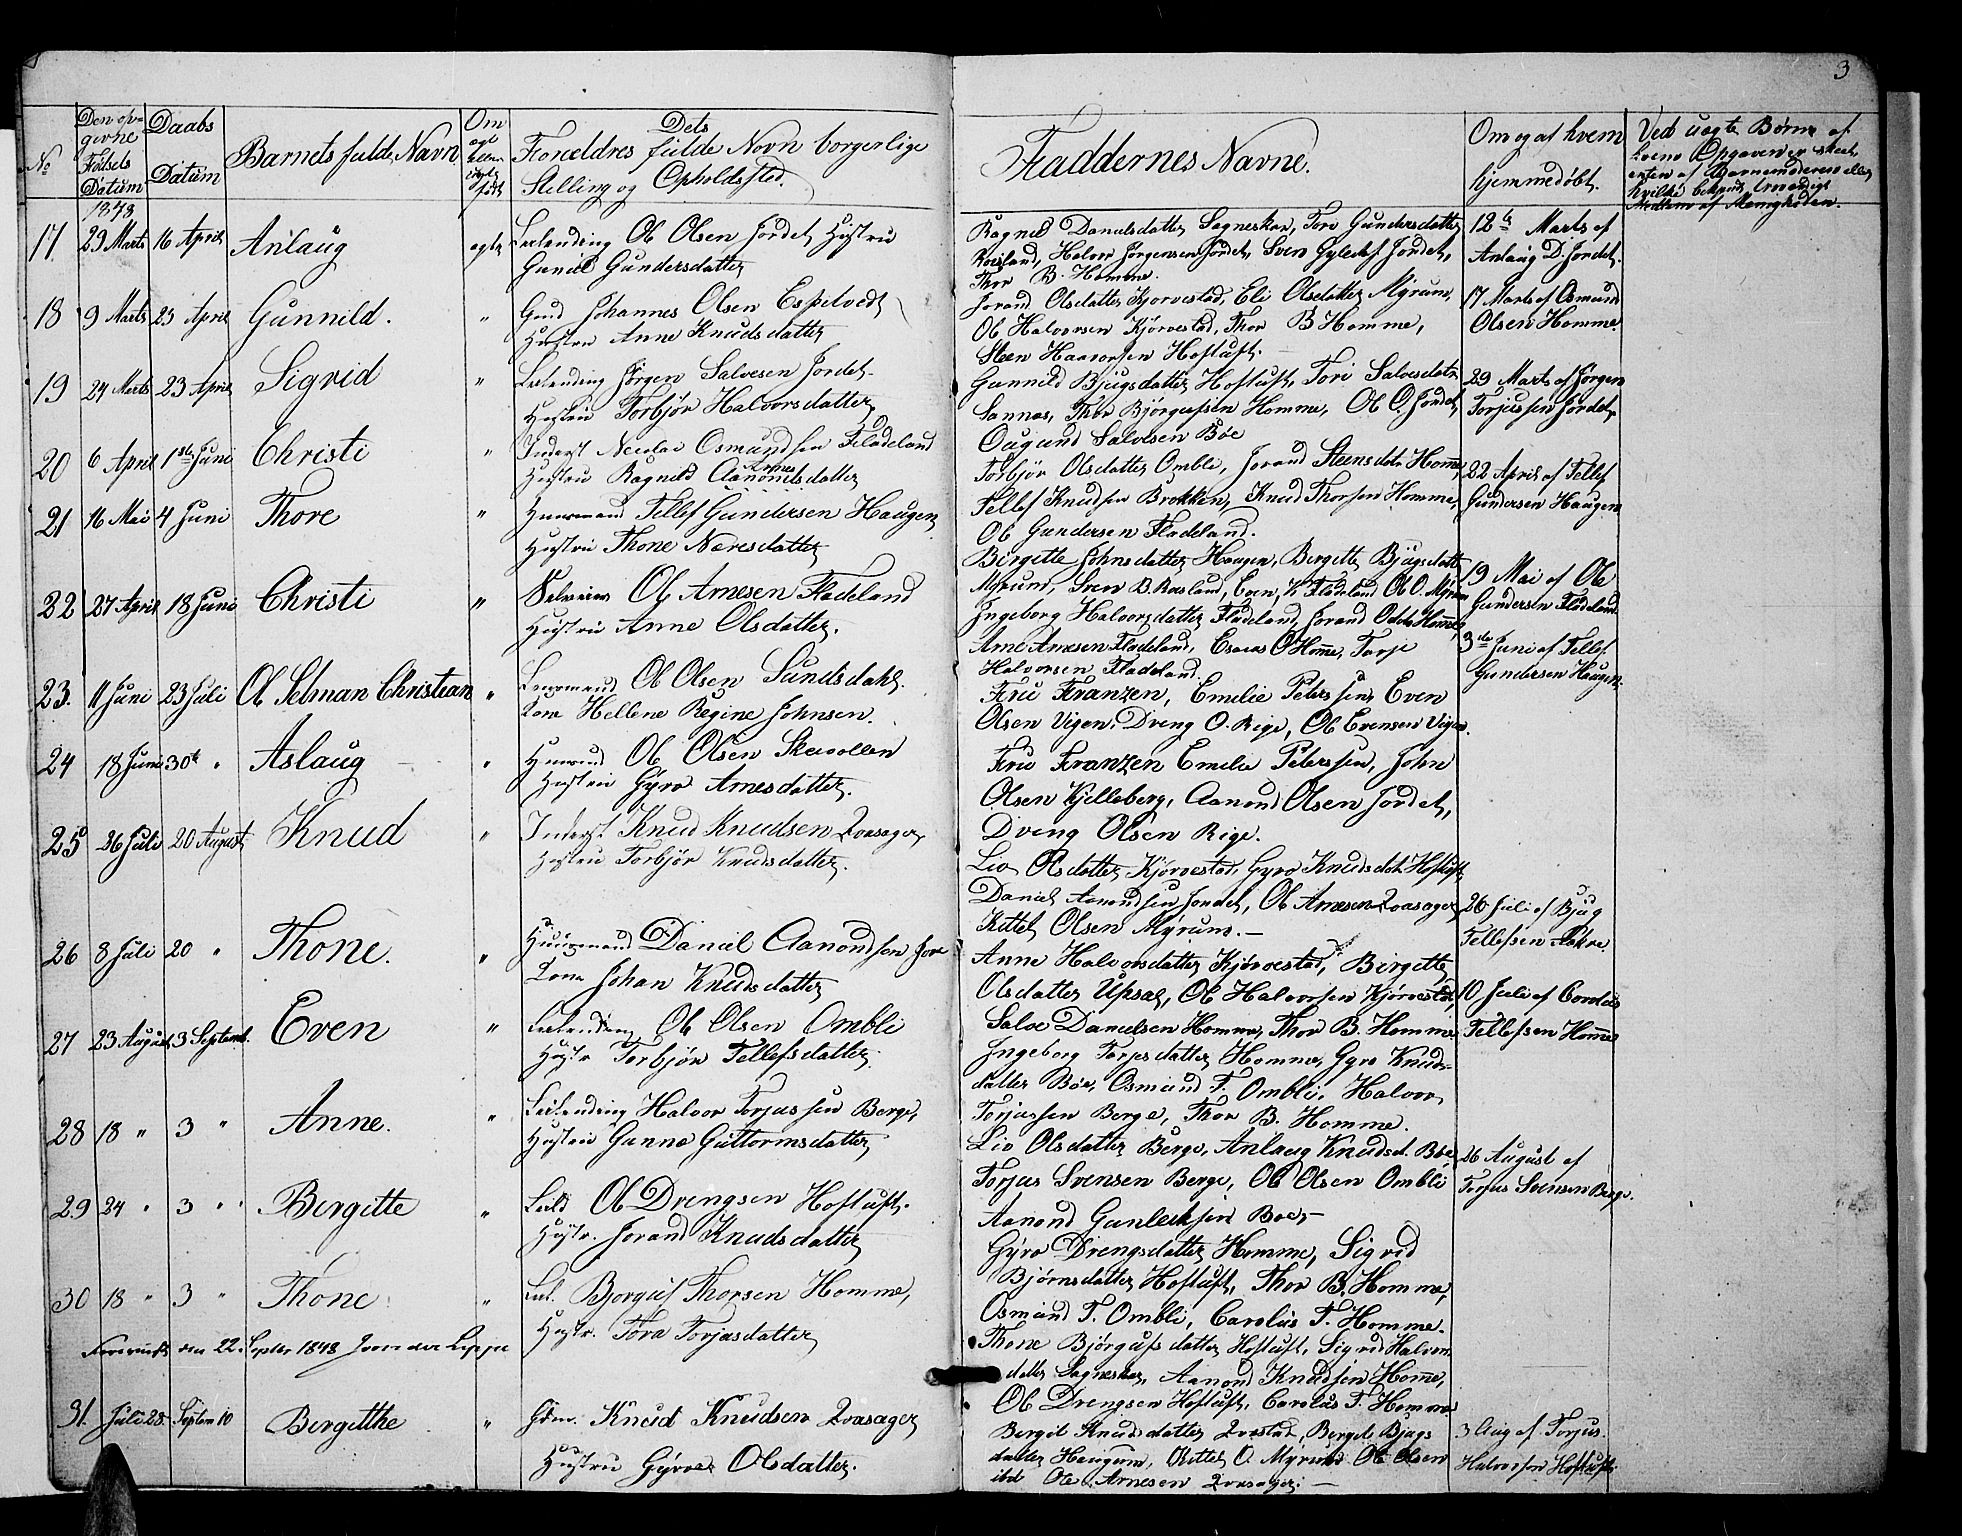 3
No
Den op-
givne
Fødsels
Datum
Daabs
Datum
Barnets fulde Navn
Om
ægte
eller
uægte
født
Dets
Forældres fulde Navn borgerlige
Stilling og Opholdssted.
Faddernes Navne.
Om og af hvem
hjemmedøbt.
Ved uægte Børn af
hvem Opgaven er skeet,
enten af Barnemoderen eller
1848
17 29 Marts 16 April Anlaug ægte Leilending Ole Olsen Jordet Hustru
Gunild Gundersdatter
Ragnild Danielsdatter Sagneskar, Tore Gundersdatter
Rosland, Halvor Jørgensen Jordet, Sven Jordet,
Thor B. Homme.
12te Marts af
Anlaug D. Jordet.
18 9 Marts 23 April Gunnild. " Gmd Johannes Olsen Espetvedt
Hustru Anne Knudsdatter
Jorand Olsdatter Kjørvestad, Eli Olsdatter Myrum,
Ole Halvorsen Kjørvestad, Thor B Homme,
Steen Haavorsen Hoftuft.
17 Marts af Osmund
Olsen Homme
19 24 Marts 23 April Sigrid " Leilending Jørgen Salvesen Jordet
Hustru Torbjør Halvorsdatter
Gunnild Bjugsdatter Hoftuft, Tori Salvesdatr
Sannas, Thor Bjørgufsen Homme, Ole O. Jordet,
Ougund Salvesen Bøe
29 Marts af Jørgen
Torjussen Jordet
20 6 April 1ste Juni Christi " Inderst Nicolai Osmundsen Fladeland
Hustru Ragnild Aanondsdatter
Torbjør Olsdatter Ombli, Jorand Steensdatr Homme,
Tellef Knudsen Brokken, Knud Thorsen Homme,
Ole Gundersen Fladeland.
22 April af Tellef
Gundersen Haugen
21 16 Mai 4 Juni Thore " Huusmand Tellef Gundersen Haugen
Hustru Thone Næresdatter
Birgitte Johnsdatter Haugen, Bergitte Bjugsdatter
Myrund, Sven B. Rosland, Even K Fladeland Ole O. Myrum
19 Mai af Ole
Gundersen Fladeland
22 27 April 18 Juni Christi " Selveier Ole Arnesen Fladeland
Hustru Anne Olsdatter.
Ingeborg Halvorsdatter Fladeland, Jorand Homme,
Arne Arnesen Fladeland, Esaias O Homme, Torje
Halvorsen Fladeland.
3die Juni af Tellef
Gundersen Haugen.
23. 11 Juni 23 Juli Ole Selman Christian " Ole Olsen Sundsdahl.
Kone Hellene Regine Johnsen.
Fru Franzen, Emelie Peterssen, Even
Olsen Vigen, Dreng O. Rige, Ole Evensen Vigen.
24 18 Juni 30te " Aslaug " Huusmd Ole Olsen Skavollen
Hustru Gyro Arnesdatter.
Fru Franzen Emelie Peterssen, John
Olsen Kjelleberg, Aanond Olsen Jordet,
Dreng Olsen Rige.
25 26 Juli 20 August Knud " Inderst Knud Knudsen Qvasager
Hustru Torbjør Knudsdatter.
Liv Olsdatter Kjørvestad, Gyro Knudsdatr Hoftuft,
Daniel Aanondsen Jordet, Ole Arnesen Qvasager
Kittel Olsen Myrum. —
26 Juli af Bjug
Tellefsen
26 8 Juli 20 " Thone. " Huusmand Daniel Aanondsen Jore
Kone Johan Knudsdatter
Anne Halvorsdatter Kjørvestad, Birgitte
Olsdatter Upsal, Ole Halvorsen Kjørvestad,
Salve Danielsen Homme, Thor B. Homme
10 Juli af Corolus
Tellefsen Homme
27 23 August 3 Septemb. Even " Leilending Ole Olsen Ombli
Hustr Torbjør Tellefsdatter.
Ingeborg Torjesdatter Homme, Gyro Knuds-
datter Bøe, Osmund T. Ombli, Halvor
Torjussen Berge, Thor B. Homme.
28 18 " 3 " Anne. " Leilending Halvor Torjussen Berge,
Hustru Gunne Guttormsdatter
Liv Olsdatter Berge, Anlaug Knudsd. Bøe,
Torjus Svensen Berge, Ole Olsen Ombli
Aanond Gunleiksen Boe, —
26 August af
Torjus Svensen Berge.
29 24 " 3 " Bergitte " Leild Ole Drengsen Hoftuft.
Hustr. Jorand Knudsdatter
Gyro Drengsdatter Homme, Sigrid
Bjørnsdatter Hoftuft, Thor B. Homme,
Osmund T. Ombli, Carolus T. Homme.
30 18 " 3 " Thone " Leil. Bjorguf Thorsen Homme,
Hustr. Tora Torjusdatter
Thone Bjørgufsdatter Hoftuft, Sigrid Halvors
datter Sagneskar, Aanond Knudsen Homme,
Ole Drengsen Hoftuft, Carolus T. Homme
den 22. Septbr 1848
31. Juli 28. Septem 10 Bergitthe " Knud Knudsen Qvasager
Hustru Gyroe Olsdatter.
Bergit Knudsdatter Bergit Bjugs
datter Haugum, Kittel O. Myrum Ole Olsen
ibd Ole Arnesen Qvasager. —
3 Aug af Torjus
Halvorsen Hoftuft